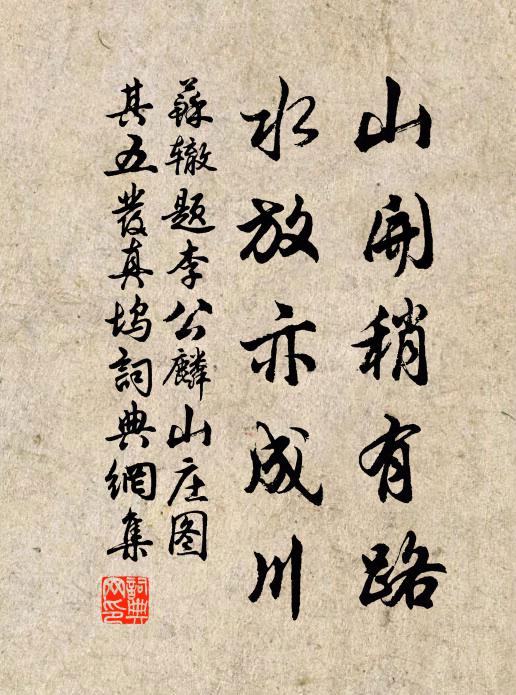 山開稍有路
水放亦成川
蘇辙题李公麟山庄图
其五發真塢詞典網集